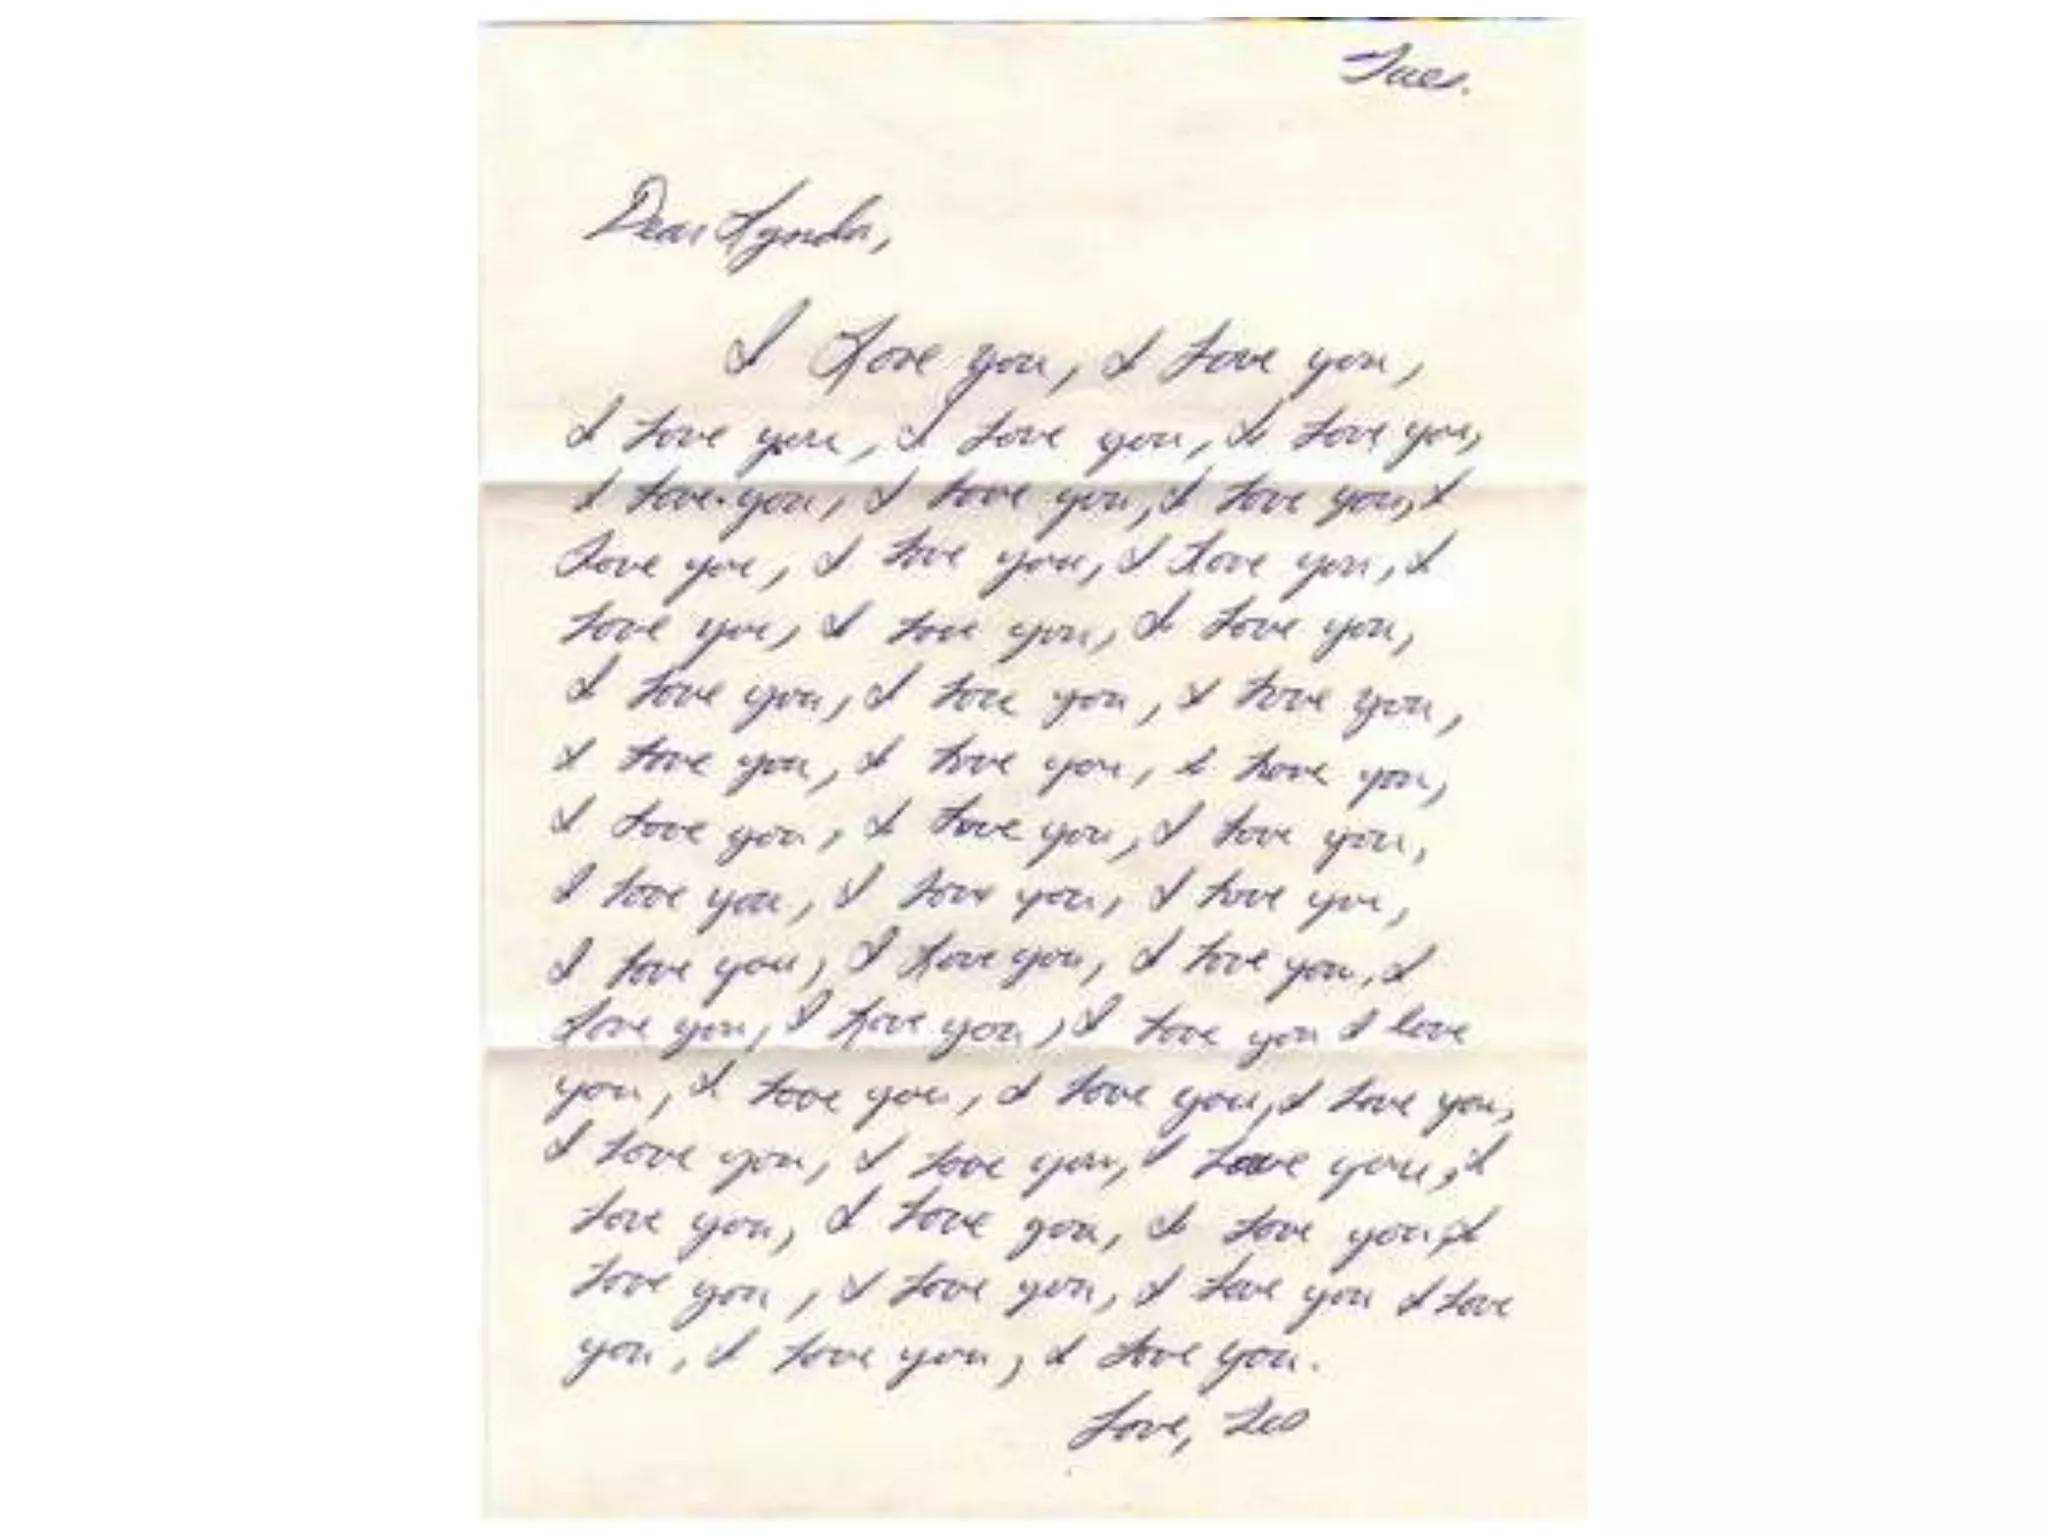 Tues.
Dear Lynda,
I Love you, I Love you,
I love you, I love you, I love you,
I love you, I love you, I love you, I
love you, I love you, I love you, I
love you, I love you, I love you,
I love you, I love you, I love you,
I love you, I love you, I love you,
I love you, I love you, I love you,
I love you, I love you, I love you,
I love you, I love you, I love you, I
love you, I love you, I love you I love
you, I love you, I love you, I love you,
I love you, I love you, I love you, I
love you, I love you, I love you, I
love you, I love you, I love you I love
you, I love you, I love you.
Love, Leo